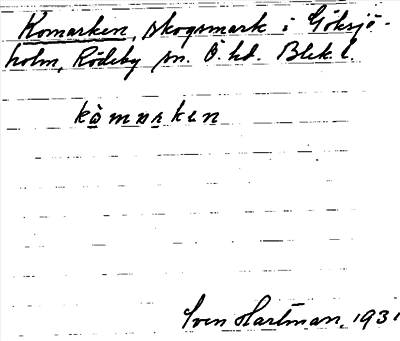 Komarken, skogsmark i Göksjö-
holm, Rödeby sn. Ö. hd. Blek. l.
kòmarken
Sven Hartman, 1931